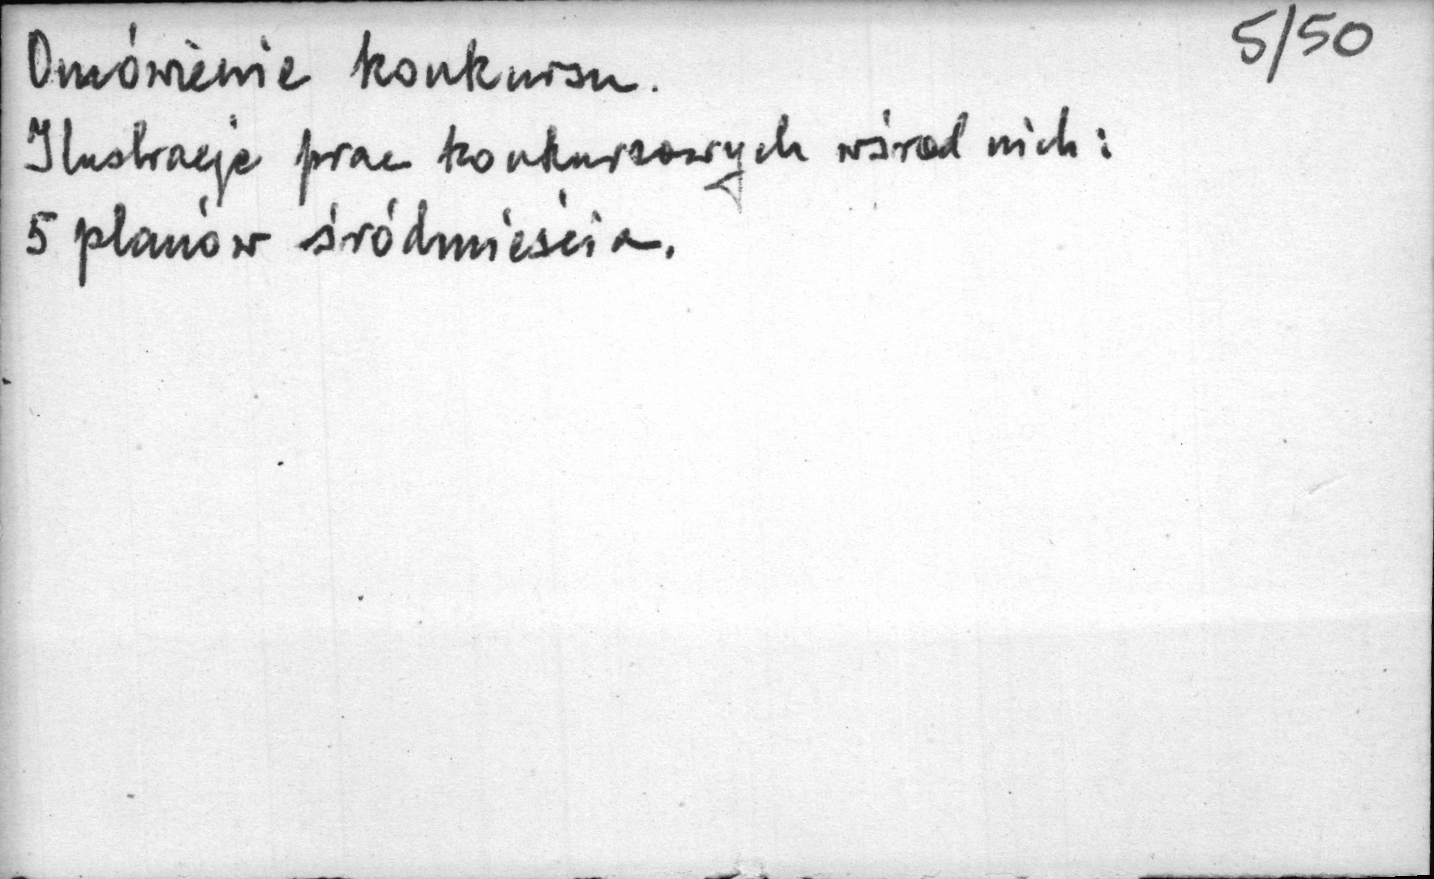 5/50
Omówienie konkursu.
Ilustracje prac konkursowych wśrod nich:
5 planów śródmieścia.